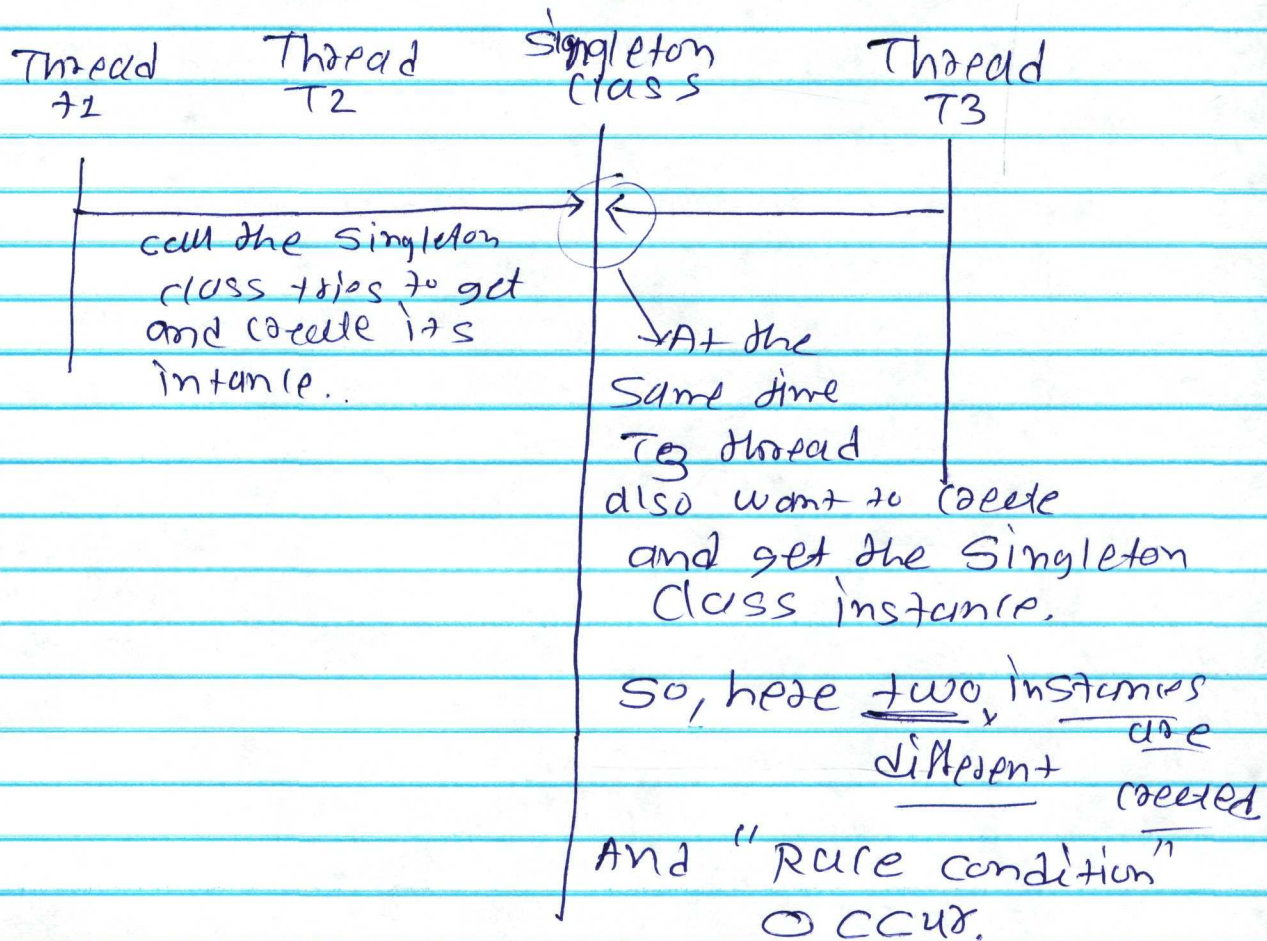 Thread
t1
Thread
T2
Singleton
Class
Thread
T3
call the Singleton
class tries to get
and create its
intance..
At the
Same time
T3 thread
also want to create
and get the Singleton
Class instance.
So, here two instances
different
are
created
And "Race condition"
occur.